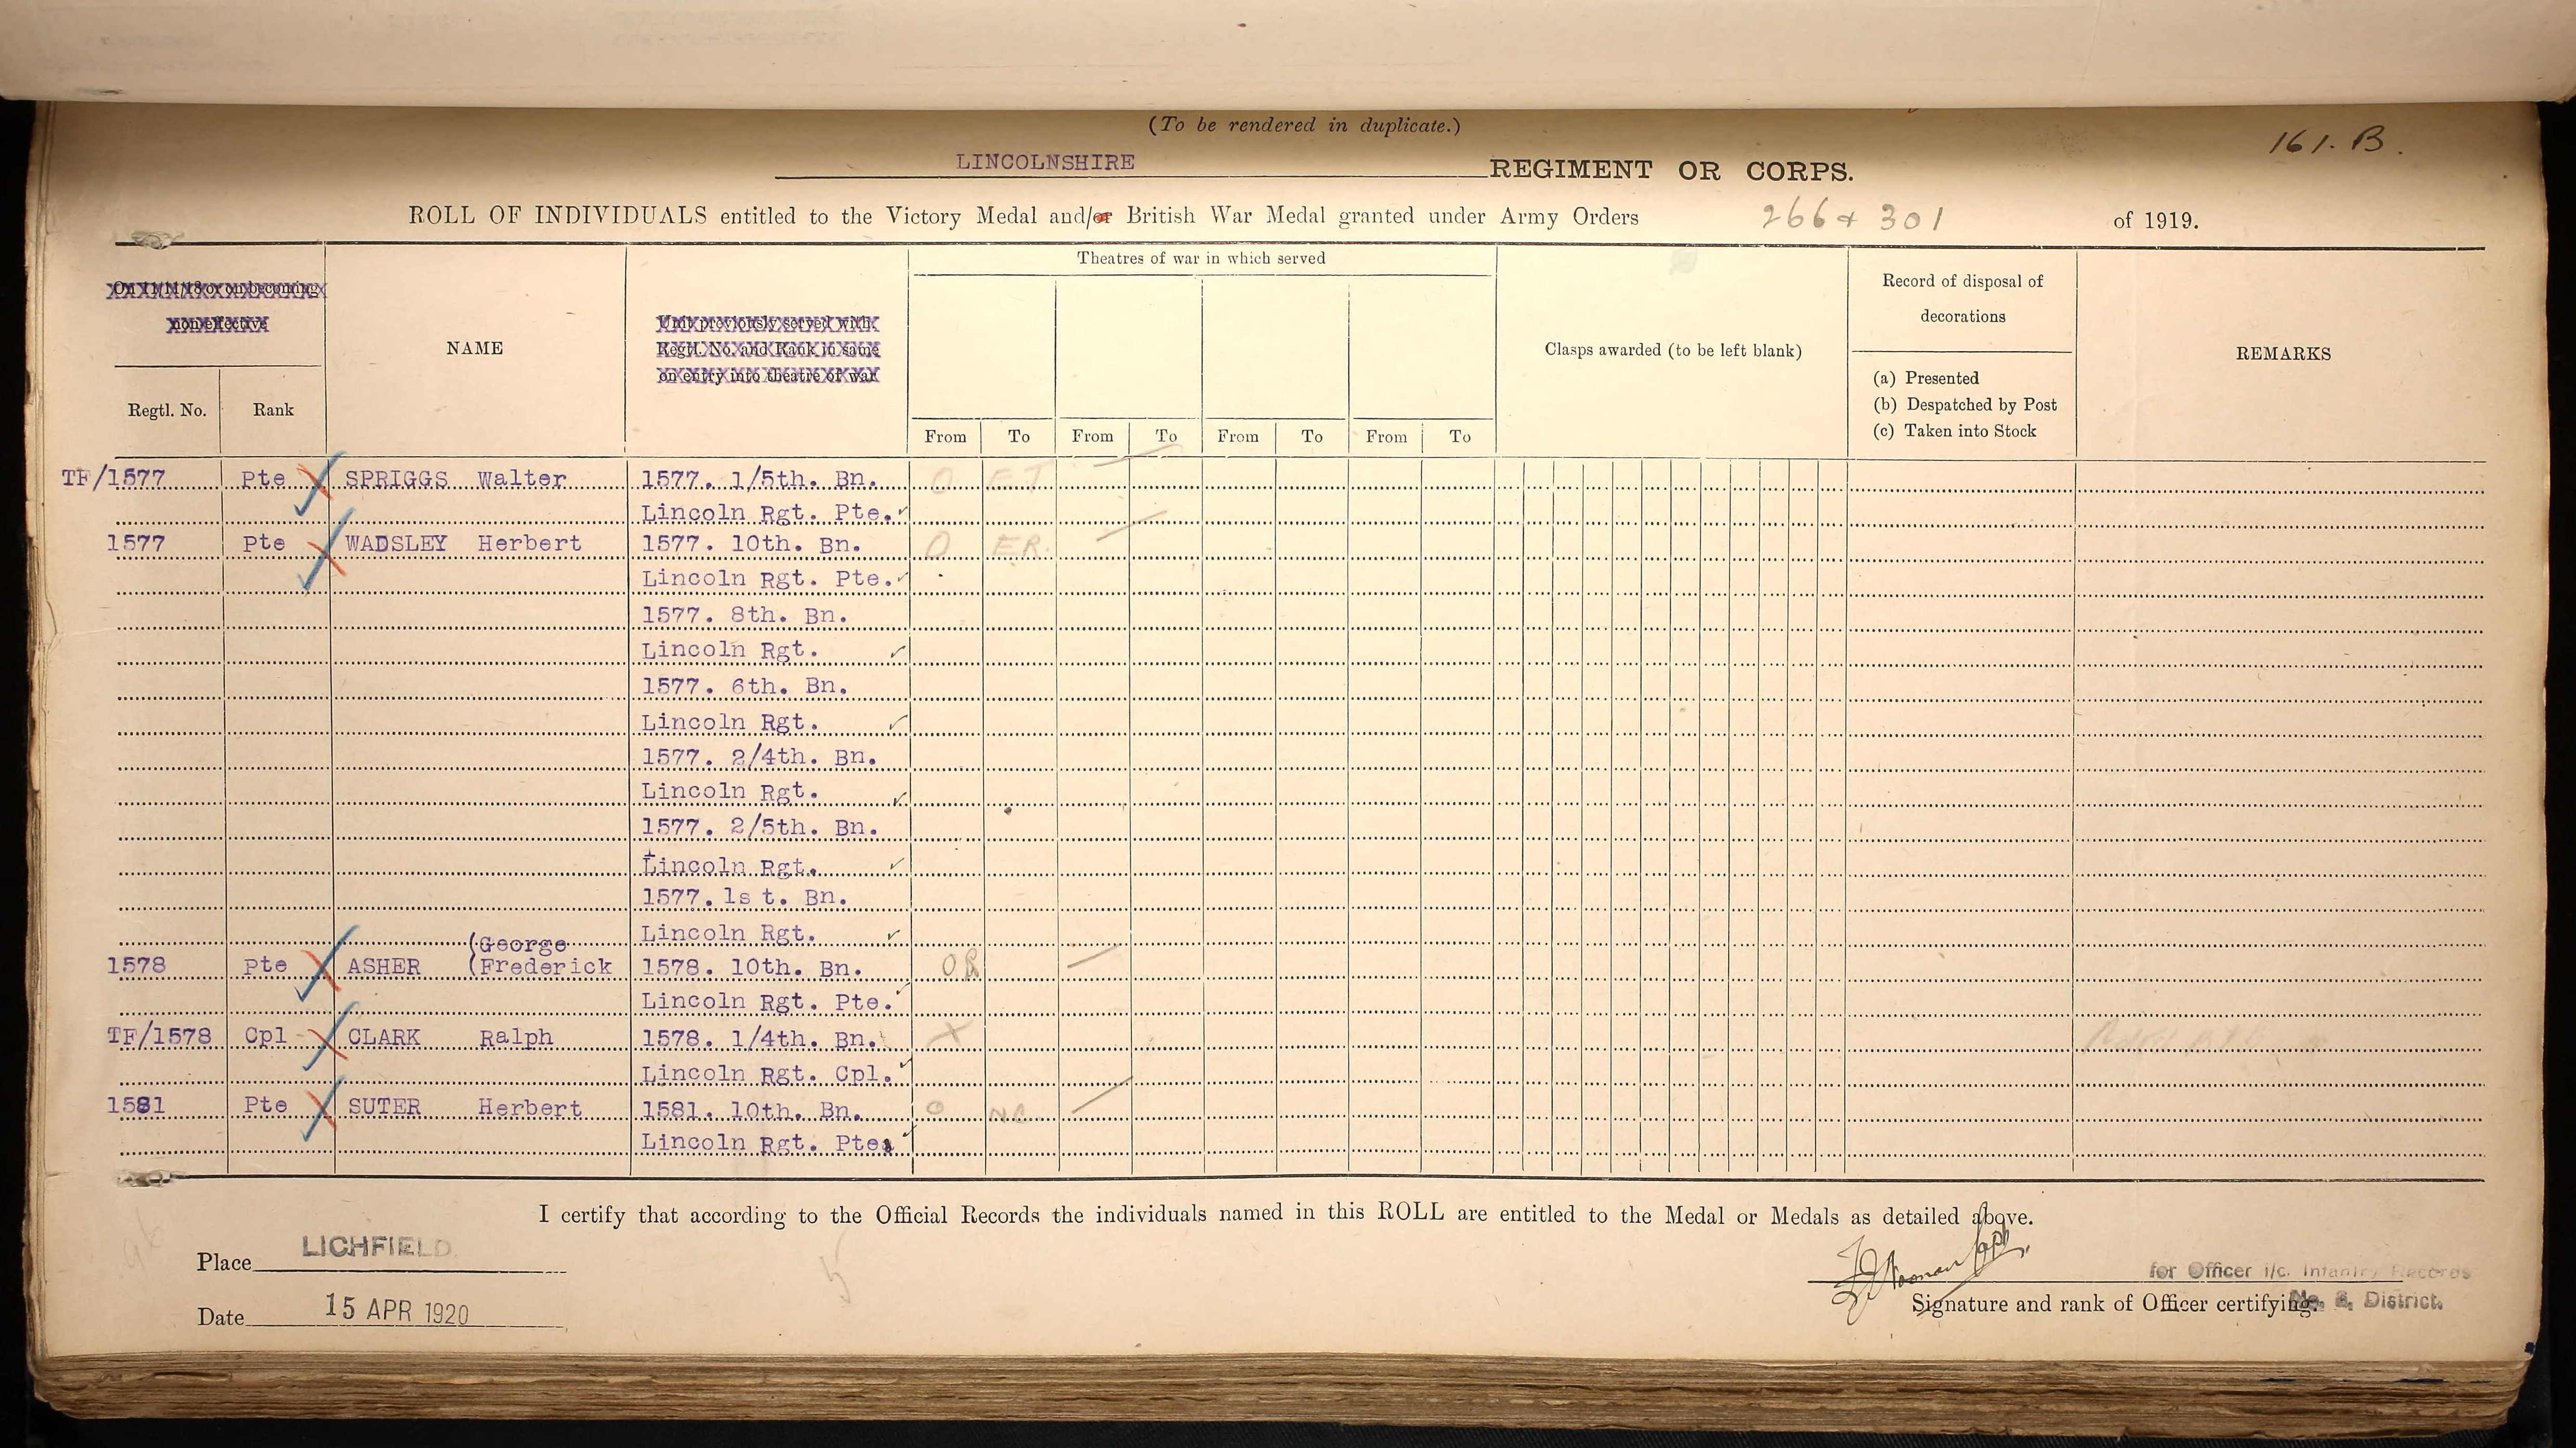 (To be rendered in duplicate.)
161. B.
LINCOLNSHIRE REGIMENT OR CORPS.
ROLL OF INDIVIDUALS entitled to the Victory Medal and/or British War Medal granted under Army Orders 266 + 301 of 1919.
On 11/11/18 or on becoming
non-effective
Regtl. No.
Rank
NAME
Unit previously served with
Regtl. No. and Rank in same
on entry into theatre of war
Theatres of war in which served
From To From To From To From To
Clasps awarded (to be left blank)
Record of disposal of
decorations
(a) Presented
(b) Despatched by Post
(c) Taken into Stock
REMARKS
TF/1577 Pte SPRIGGS Walter 1577. 1/5th. Bn. O ET
Lincoln Rgt. Pte.
1577 Pte WADSLEY Herbert 1577. 10th. Bn. O ER.
Lincoln Rgt. Pte.
1577. 8th. Bn.
Lincoln Rgt.
1577. 6th. Bn.
Lincoln Rgt.
1577. 2/4th. Bn.
Lincoln Rgt.
1577. 2/5th. Bn.
Lincoln Rgt.
1577. 1st. Bn.
Lincoln Rgt.
(George
1578 Pte ASHER (Frederick 1578. 10th. Bn. OR
Lincoln Rgt. Pte.
TF/1578 Cpl CLARK Ralph 1578. 1/4th. Bn. X
Lincoln Rgt. Cpl.
1581 Pte SUTER Herbert 1581. 10th. Bn. O
Lincoln Rgt. Pte.
I certify that according to the Official Records the individuals named in this ROLL are entitled to the Medal or Medals as detailed above.
Place LICHFIELD
Date 15 APR 1920
Capt
for Officer i/c. Infantry Records
Signature and rank of Officer certifying.
No. 6. District.